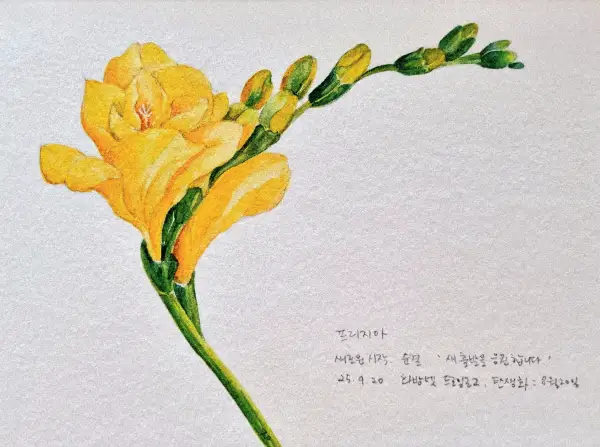 프리지아
새로운 시작. 순결 '새 출발을 응원합니다'
25. 9. 20 탄생화 : 8월20일